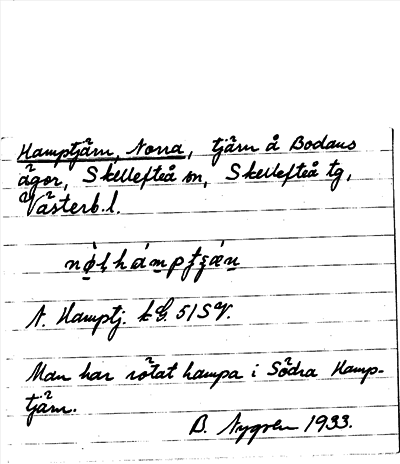 Hamptjärn, Norra, tjärn å Bodans
ägor, Skellefteå sn, Skellefteå tg,
Västerb.l.
N. Hamptj. 51 SV.
Man har rötat hampa i Södra Hamp-
tjärn.
B. Nygren 1933.